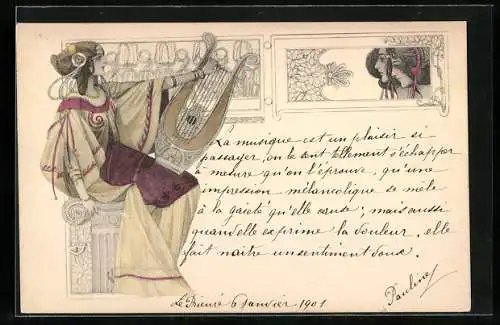 La musique est un plaisir si
passager, on le sent tellement s'échapper
à mesure qu'on l'éprouve, qu'une
impression mélancolique se mêle
à la gaieté qu'elle cause; mais aussi
quand elle exprime la douleur, elle
fait naître un sentiment doux.
Le Prieuré 6 Janvier 1901
Pauline